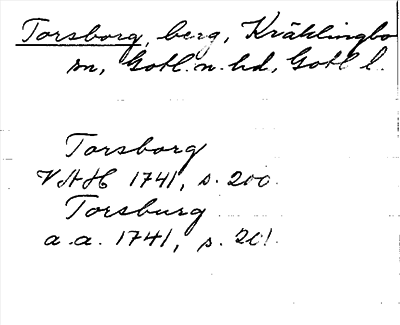 Torsborg, berg, Kräklingbo
sn, Gotl. n. hd, Gotl l.
Torsborg
VAH 1741, s. 200.
Torsburg
a.a. 1741, s. 201.